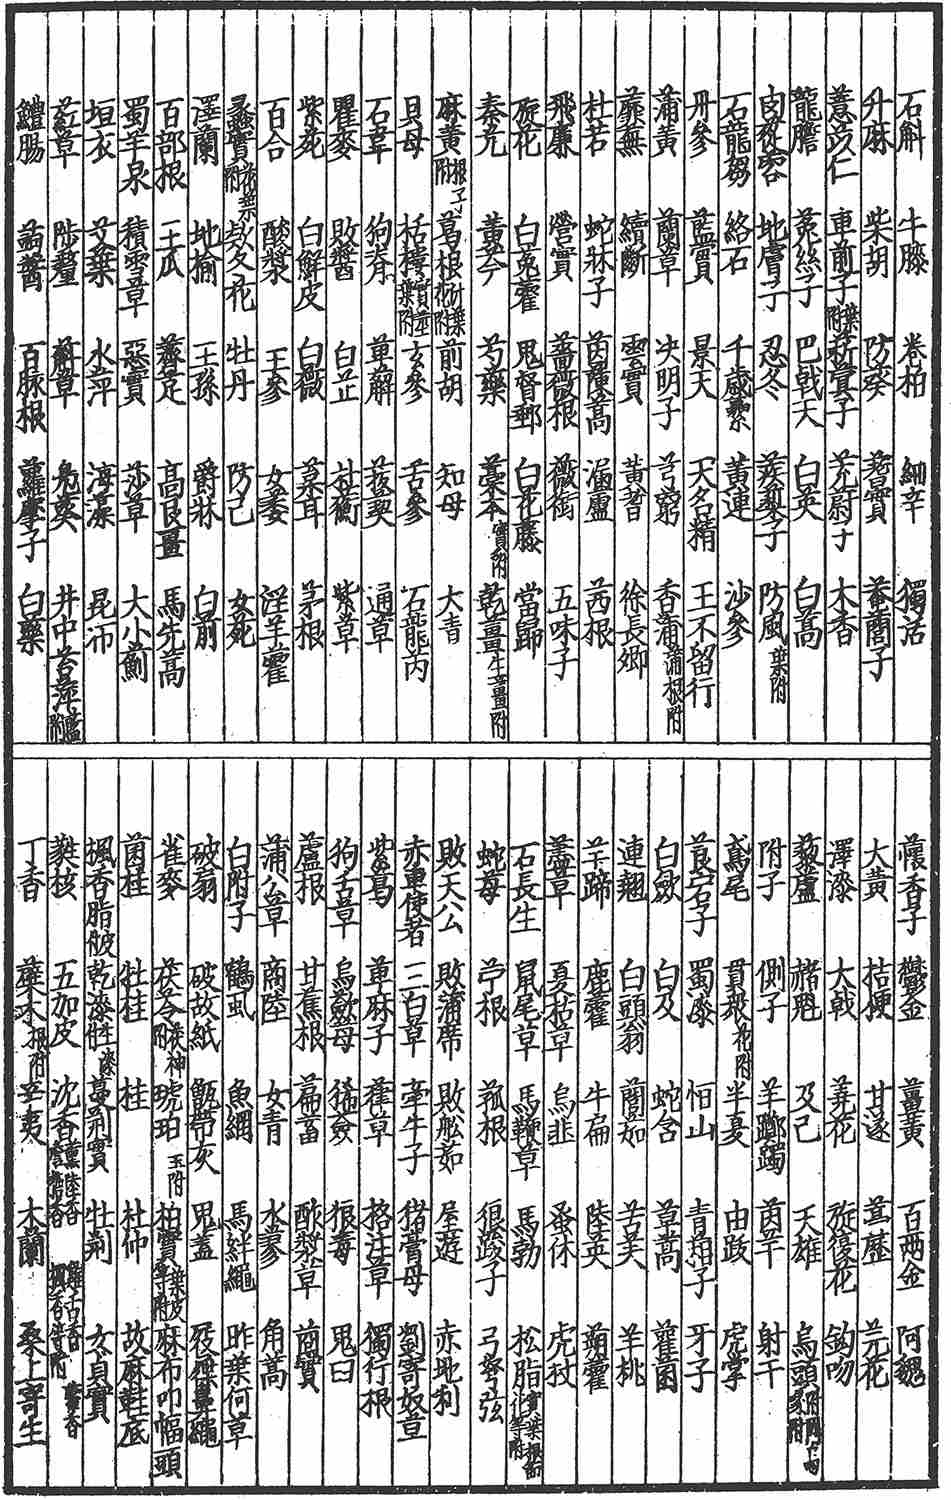 石斛 牛膝 卷柏 細辛 獨活
升麻 柴胡 防葵 蓍實 菴䕡子
薏苡仁 車前子葉附 菥蓂子 茺蔚子 木香
龍膽 菟絲子 巴戟天 白英 白蒿
肉蓯蓉 地膚子 忍冬 蒺䔧子 防風葉附
石龍芻 絡石 千歲虆 黃連 沙參
丹參 藍實 景天 天名精 王不留行
蒲黃 蘭草 決明子 芎藭 香蒲蒲根附
蘼蕪 續斷 雲實 黃耆 徐長卿
杜若 蛇牀子 茵蔯蒿 漏盧 茜根
飛廉 營實 薔薇根 薇銜 五味子
旋花 白菟藿 鬼督郵 白花藤 當歸
秦艽 黃芩 芍藥 藁本實附 乾薑生薑附
麻黃根子附 葛根汁葉花附 前胡 知母 大青
貝母 栝樓實莖葉附 玄參 苦參 石龍芮
石韋 狗脊 萆解 菝葜 通草
瞿麥 敗醬 白芷 杜蘅 紫草
紫菀 白鮮皮 白薇 葈耳 茅根
百合 酸漿 王參 女萎 淫羊藿
蠡實花葉附 欵冬花 牡丹 防己 女菀
澤蘭 地揄 王孫 爵牀 白前
百部根 王瓜 薺苨 高良薑 馬先蒿
蜀羊泉 積雪草 惡實 莎草 大小薊
垣衣 艾葉 水萍 海藻 昆布
葒草 陟釐 䔂草 鳧葵 井中苔萍藍附
鱧腸 蒟醬 百脉根 蘿摩子 白藥
蘹香子 鬱金 薑黃 百兩金 阿魏
大黃 桔梗 甘遂 葶藶 芫花
澤漆 大戟 蕘花 旋復花 鈎吻
藜蘆 赭魁 及己 天雄 烏頭
附子 側子 羊躑躅 茵芋 射干
鳶尾 貫衆花附 半夏 由跋 虎掌
莨菪子 蜀漆 恒山 青葙子 牙子
白歛 白及 蛇含 草蒿 雚菌
連翹 白頭翁 䕡茹 苦芺 羊桃
羊蹄 鹿藿 牛扁 陸英 蒴藋
藎草 夏枯草 烏韭 蚤休 虎杖
石長生 鼠尾草 馬鞭草 馬勃 松脂實葉根節花等附
蛇莓 苧根 菰根 狼跋子 弓弩弦
敗天公 敗蒲席 敗舩茹 屋遊 赤地利
赤車使者 三白草 牽牛子 猪膏母 劉寄奴草
紫葛 萆麻子 葎草 格注草 獨行根
狗舌草 烏歛母 豨薟 狼毒 鬼臼
蘆根 甘蕉根 萹蓄 酢漿草 茴實
蒲公草 商陸 女青 水蓼 角蒿
白附子 鶴虱 魚網 馬絆繩 昨葉何草
破翁 破故紙 甑帶灰 鬼蓋 弶繩
雀麥 茯苓茯神附 琥珀玉附 柏實葉皮等附 麻布叩幅頭
菌桂 牡桂 桂 杜仲 故麻鞋底
楓香脂皮 乾漆生漆 蔓荊實 牡荊 女貞實
蕤核 五加皮 沈香薰陸香 雞舌香 詹糖香 楓香等附
丁香 蘗木根附 辛夷 木蘭 桑上寄生